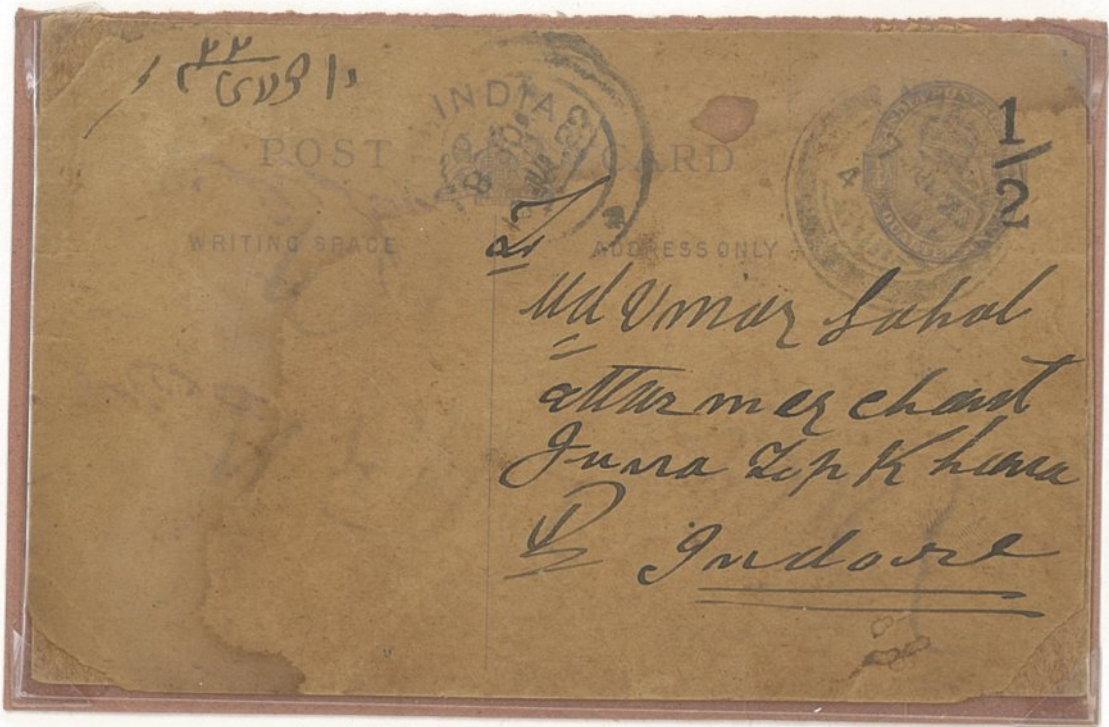 INDIA
POST CARD
1/2
WRITING SPACE
ADDRESS ONLY
To
Md Umar Sahab
attar merchant
Juna Top Khana
Indore